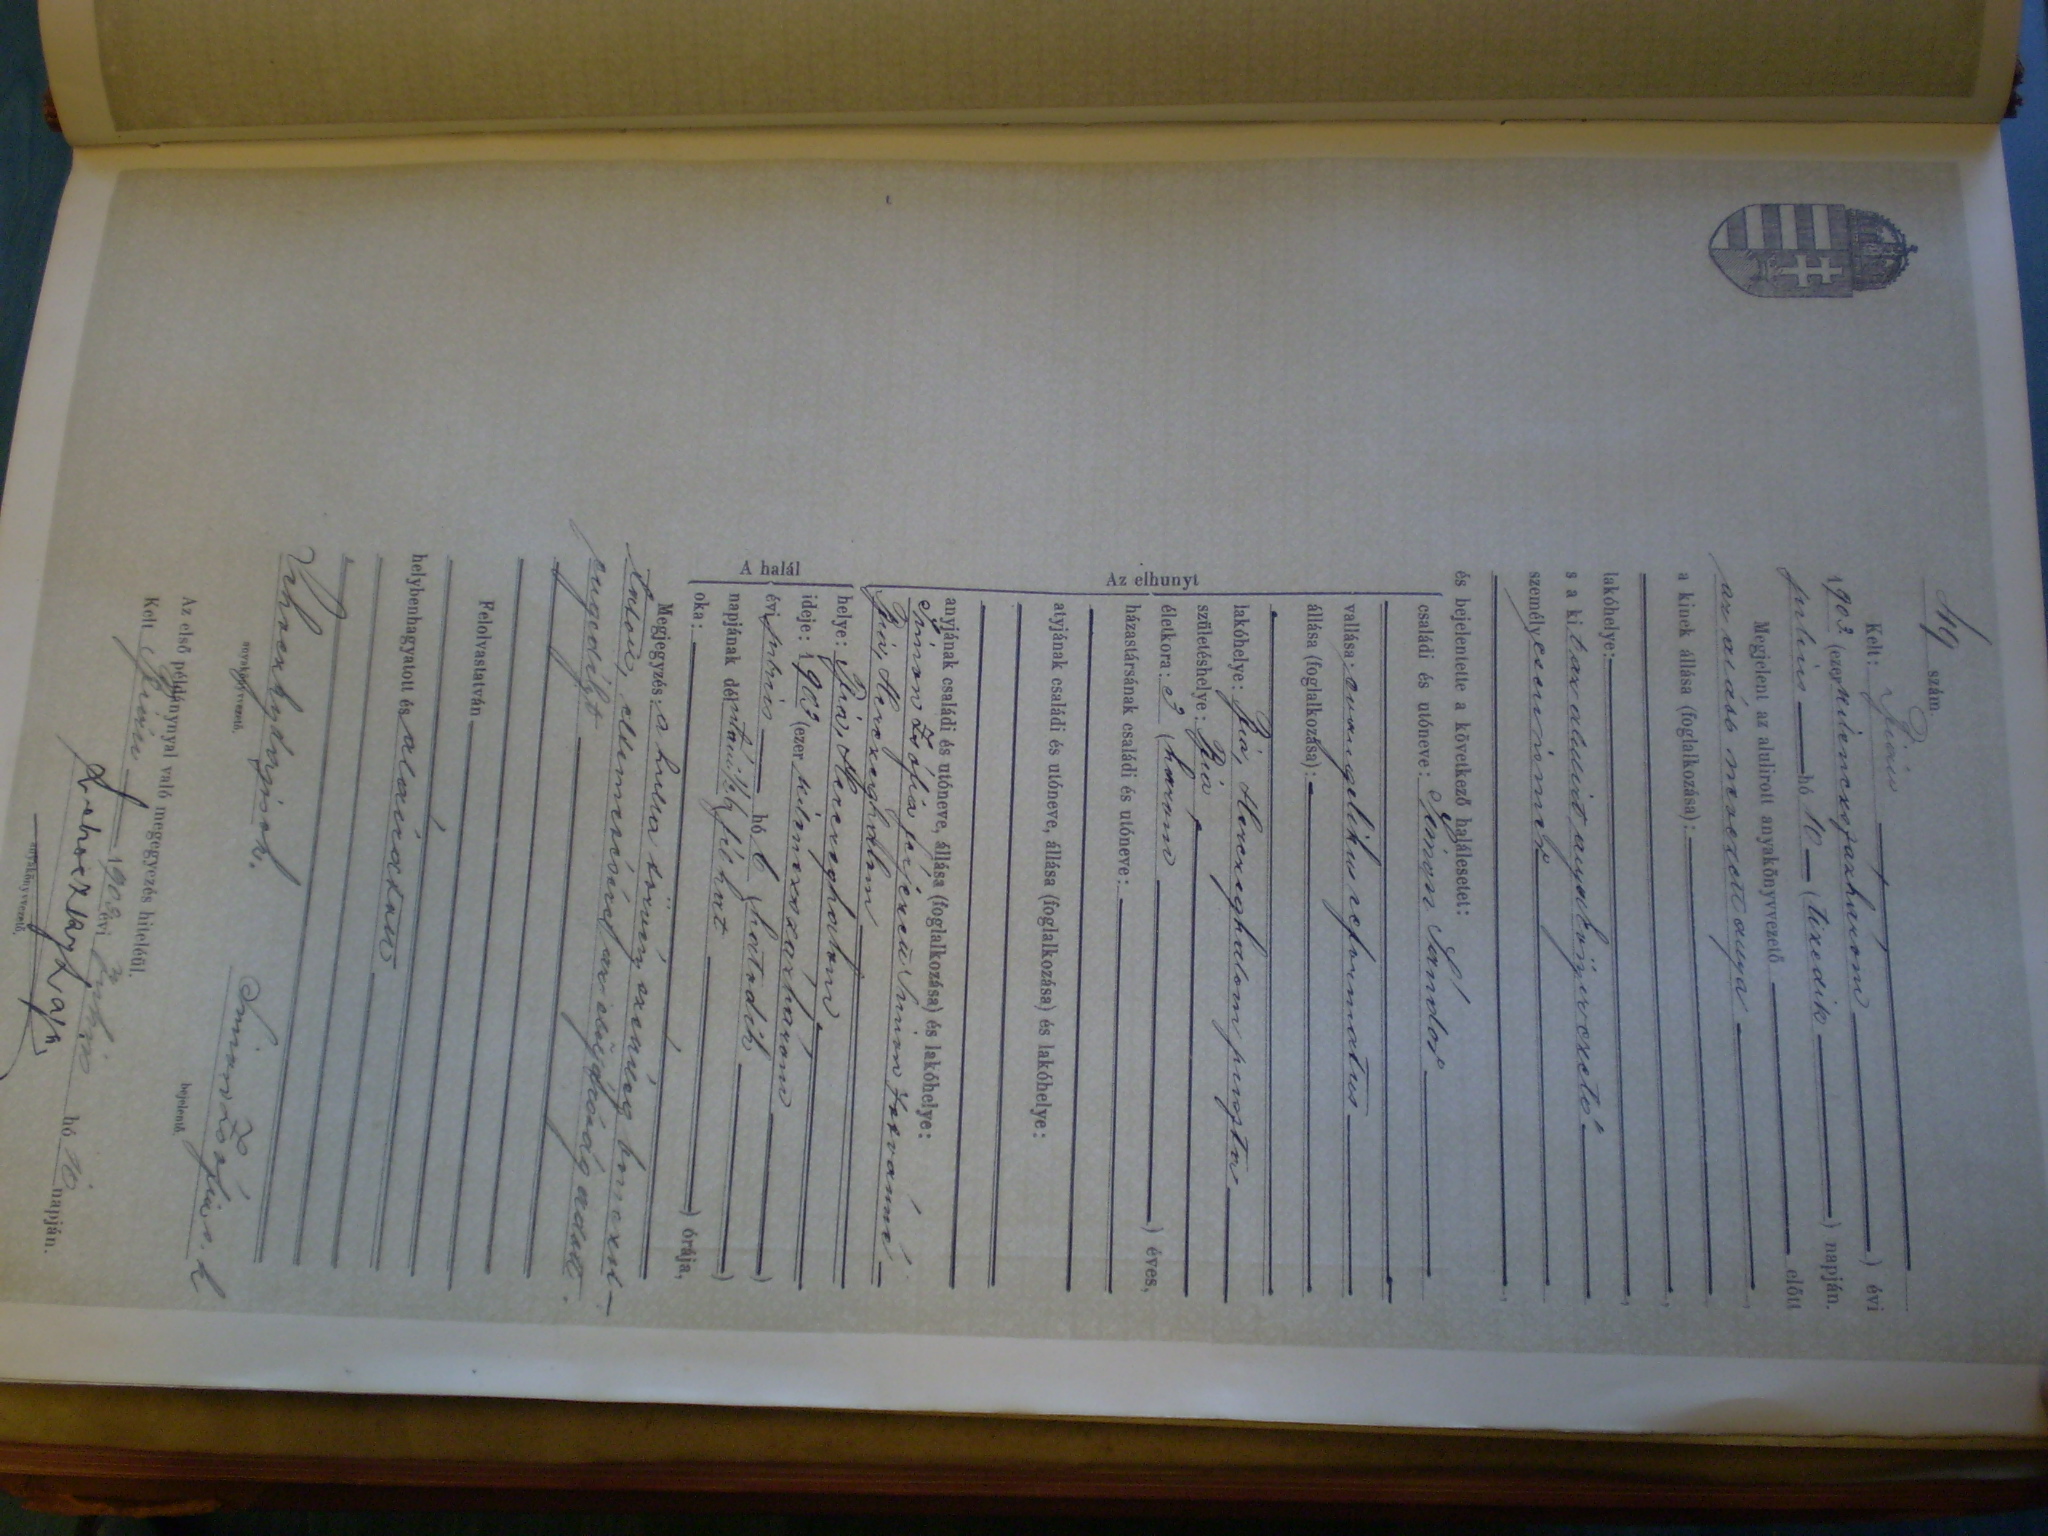 49 szám.
Kelt: Bián
1903. (ezerkilenczszázhárom) évi
julius hó 10 (tizedik) napján.
Megjelent az alulirott anyakönyvvezető előtt
az alább nevezett anya
a kinek állása (foglalkozása):
lakóhelye:
s a kit az aludirt anyakönyvvezető
személyesen ismer
és bejelentette a következő halálesetet:
Az elhunyt
családi és utóneve: Simon Sándor
vallása: evangélikus reformatus
állása (foglalkozása):
lakóhelye: Bia, Herceghalom puszta
születéshelye: Bia
életkora: 3 (három) éves,
házastársának családi és utóneve:
atyjának családi és utóneve, állása (foglalkozása) és lakóhelye:
anyjának családi és utóneve, állása (foglalkozása) és lakóhelye:
Simon Zsófia férjezett Simon Istvánné
Bia, Herczeghalom
A halál
helye: Bia, Herceghalom
ideje: 1903 (ezer kilenczszázhárom)
évi junius hó 6 (hatodik)
napjának délutáni hat
oka: órája,
Megjegyzés: a hulla
Felolvastatván
helybenhagyatott és aláíratott
anyakönyvvezető.
Simon Zsófia s. k.
bejelentő.
Az első példánynyal való megegyezés hiteléül.
Kelt Bián 1903 évi julius hó 10 napján.
anyakönyvvezető.